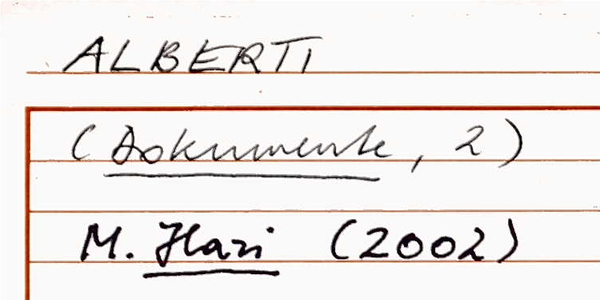 ALBERTI
(Dokumente, 2)
M. Hazi (2002)